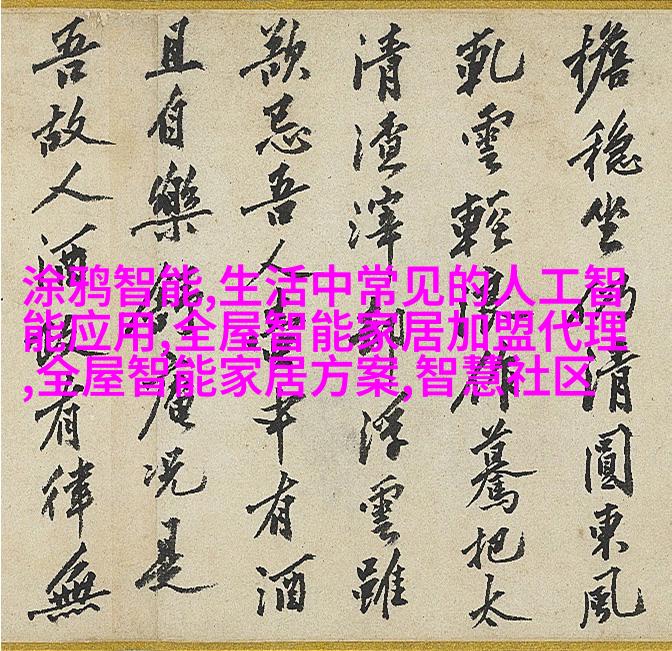 涂鸦智能,生活中常见的人工智
能应用,全屋智能家居加盟代理
,全屋智能家居方案,智慧社区
檐穩坐清圓東風
軋雲輕驀把太
清渣滓浮雲雖
忌吾人中有酒
且自樂庵况是
吾故人酒有律無